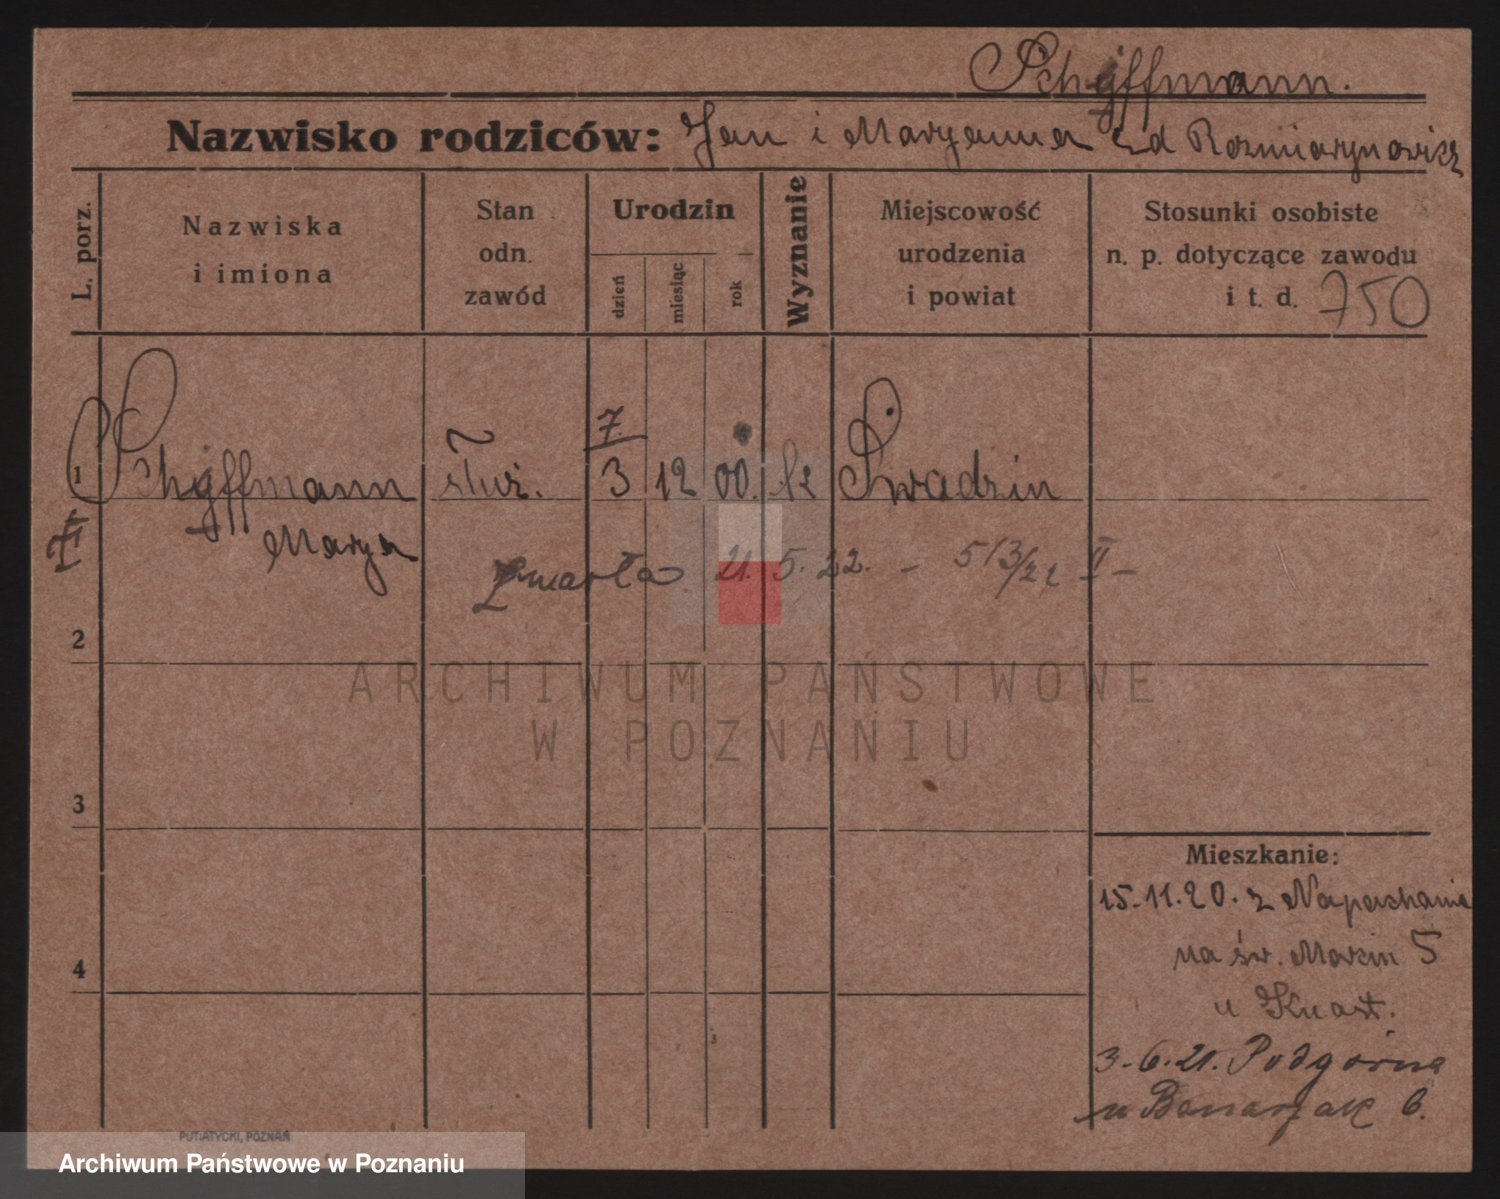 Schyffmann.
Nazwisko rodziców: Jan i Maryanna zd Rozmiarynowicz
L. porz.
Nazwiska
i imiona
Stan
odn.
zawód
Urodzin
dzień
miesiąc
rok
Wyznanie
Miejscowość
urodzenia
i powiat
Stosunki osobiste
n. p. dotyczące zawodu
i t. d. 750
7.
1 Schyffmann służ. 3 12 00. k Swadzin
Marya
zmarła 21. 5. 22. - 513/22 II -
2
3
4
ARCHIWUM PAŃSTWOWE
W POZNANIU
Mieszkanie:
15.11.20. z Napachania
na św. Marcin 5
u Knast.
3.6.21. Podgórna
u Banaszak 6.
PUTIATYCKI, POZNAŃ
Archiwum Państwowe w Poznaniu